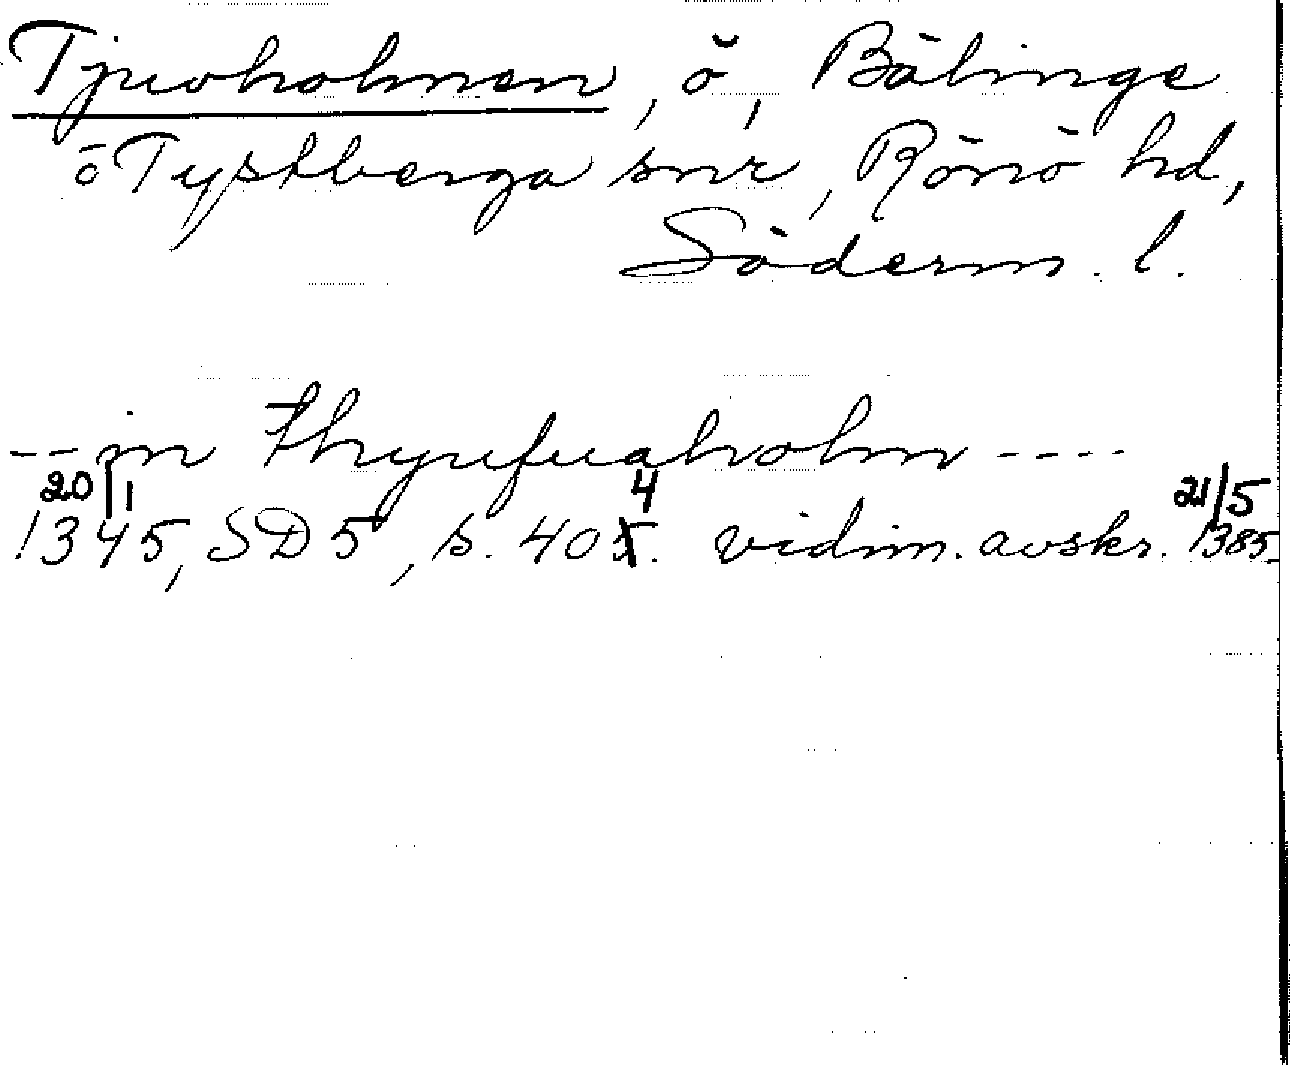 Tjuvholmen, ö, Bälinge
o Tystberga snr, Rönö hd,
Söderm. l.
-- in Thyufuaholm ----
20/1 4 21/5
1345, SD 5, s. 405. vidim. avskr. 1385